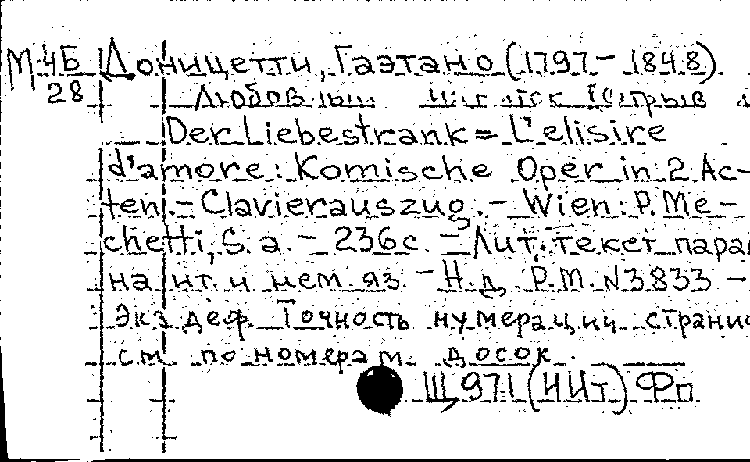 М 4Б Доницетти, Гаэтано (1797 – 1848)
28 Любовный напиток
Der Liebestrank = L'elisire
d'amore: Komische Oper in 2 Ac-
ten. – Clavierauszug. – Wien: P. Me-
chetti, S. a. – 236 с. – Лит. текст парал
на ит. и нем яз – Н. д. P. M. N 3833 –
Экз деф. Точность нумерации страни
см по номерам досок.
Щ 971 (ИИт) Фп